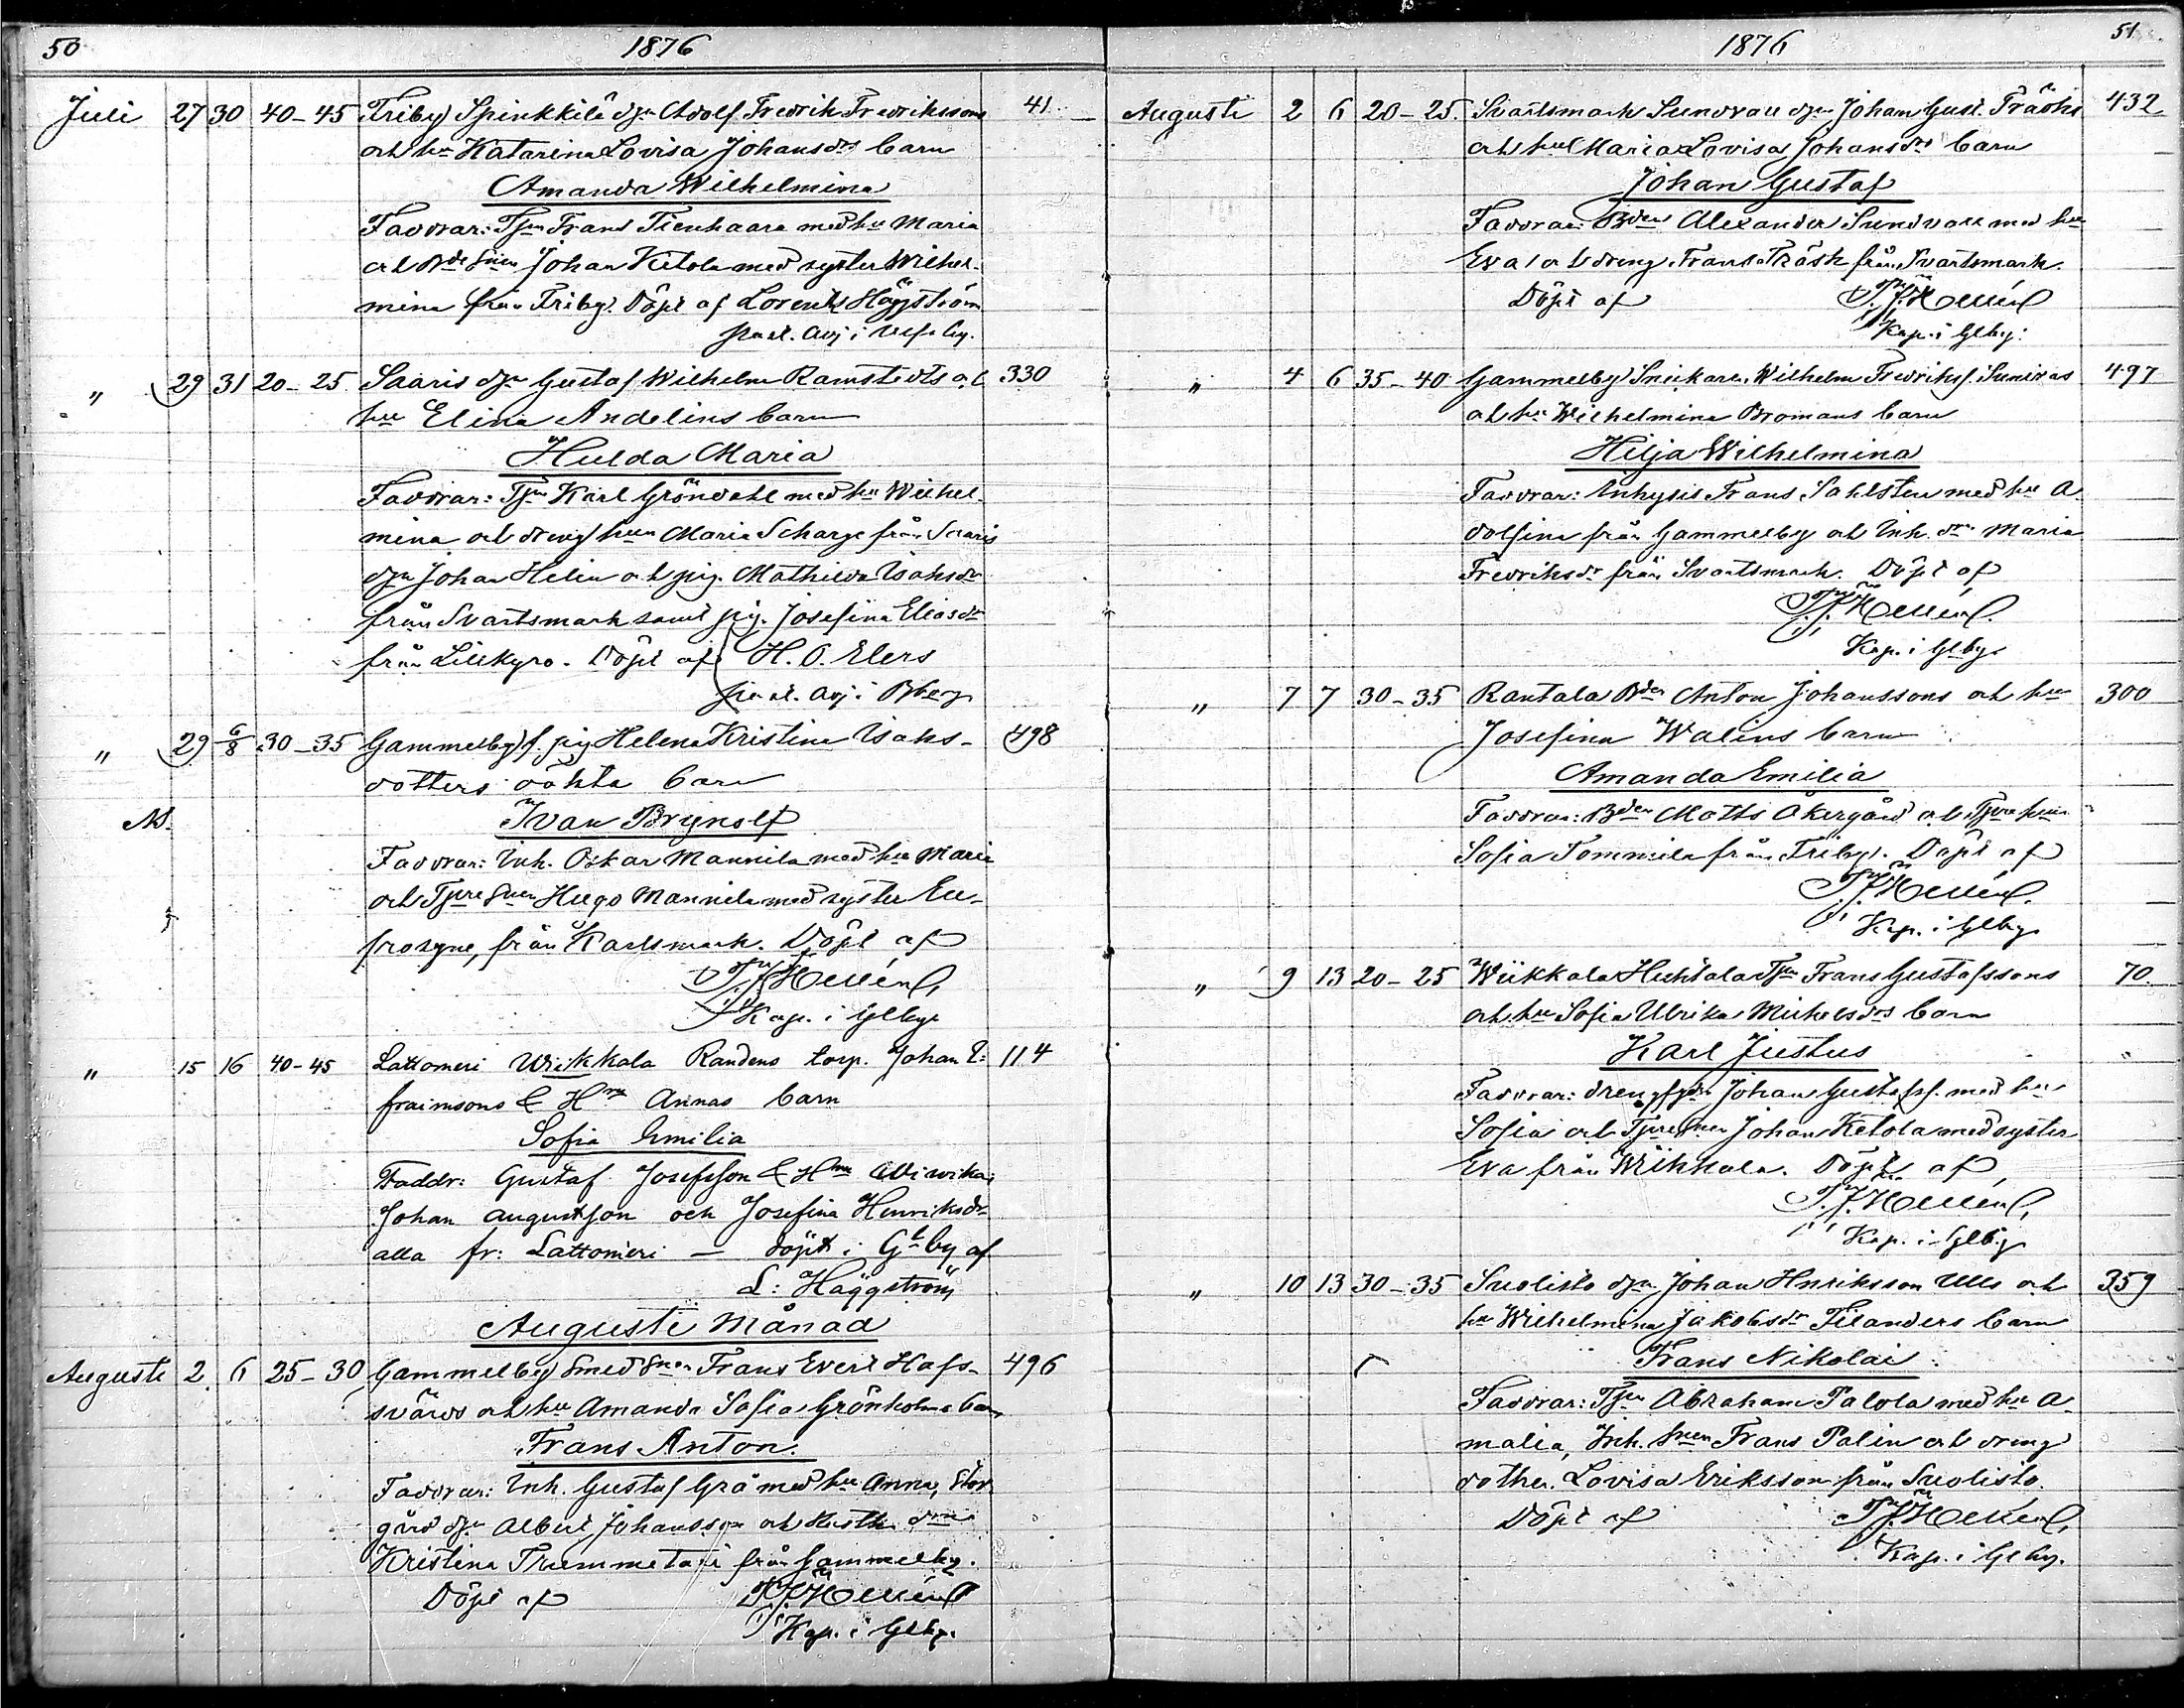 50
1876
Juli 27 30 40-45 Friby Spinkkilä Adolf Fredrik Fredrikssons 41
och hu Katarina Lovisa Johansdrs barn
Amanda Wilhelmina
Faddrar: Frans Tienhaara med hu Maria
och Johan Ketola med syster Wilhel-
mina från Friby. Döpt af Lorentz Häggström
past. adj i
" 29 31 20-25 Saaris Gustaf Wilhelm Ramstedts o.
hu Elina Andelins barn 330
Hulda Maria
Faddrar: Karl Gröndahl med hu Wilhel-
mina och dreng Maria Scharge från Saaris
Johan Helin och pig. Mathilda Isaksdr
från Svartsmark samt pig. Josefina Eliasdr
från Lillkyro. Döpt af H. O. Elers
past. adj i
" 29 6/8 30-35 Gammelby f. pig Helena Kristina Isaks- 498
dotters oökta barn
Ivan Brynolf
Faddrar: Inh. Oskar Mannila med hu Maria
och Hugo Mannila med syster Eu-
frosyne, från Karlsmark. Döpt af
Hellén,
Kap. i Glby
" 15 16 40-45 Lattomeri Wiikkala Randens torp. Johan E: 114
fraimsons & Hru Annas barn
Sofia Emilia
Faddr: Gustaf Josefsson & Hru
Johan Augustsson och Josefina Henriksdr
alla fr: Lattomeri — döpt i Glby af
L: Häggström
Augusti Månad
Augusti 2 6 25-30 Gammelby Smed Frans Evert Hafs- 496
svärds och hu Amanda Sofia Grönholms barn
Frans Anton.
Faddrar: Inh. Gustaf Grå med hu Anna, Stor-
gård Albert Johansson och
Kristina Trummetari från Gammelby.
Döpt af Hellén
Kap. i Glby.
1876
51
Augusti 2 6 20-25. Svartsmark Sundvall Johan Gust. Träsks 432
och hu Maria Lovisa Johansdrs barn
Johan Gustaf
Faddrar: Bden Alexander Sundvall med hu
Eva och dreng Frans Träsk från Svartsmark.
Döpt af Hellén
Kap. i Glby.
" 4 6 35-40 Gammelby Snickare Wilhelm Fredriks. 497
och hu Wilhelmina Bromans barn
Hilja Wilhelmina
Faddrar: Inhysis Frans Sahlsten med hu A-
dolfina från Gammelby och Inh. Maria
Fredriksdr från Svartsmark. Döpt af
Hellén.
Kap. i Glby.
" 7 7 30-35 Rantala Bden Anton Johanssons och hu 300
Josefina Walins barn
Amanda Emilia
Faddrar: Bden Matts Åkergård och
Sofia Tommila från Friby. Döpt af
Hellén.
Kap. i Glby
" 9 13 20-25 Wiikkala Huhtala Frans Gustafssons 70.
och hu Sofia Ulrika Michelsdrs barn
Karl Justus
Faddrar: Johan Gustafss. med hu
Sofia och Johan Ketola med syster
Eva från Wiikkala. Döpt af
Hellén,
Kap. i Glby
" 10 13 30-35 Suolisto Johan Hnriksson Ulls och 359
hu Wilhelmina Jakobsdr Filanders barn
Frans Nikolai
Faddrar: Abraham Palola med hu A-
malia, Inh. Frans Palin och dreng
dother. Lovisa Eriksson från Suolisto.
Döpt af Hellén,
Kap. i Glby.